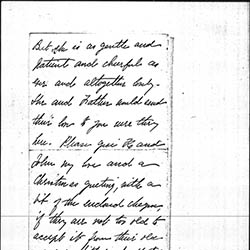 But she is as gentle and
patient and cheerful as
ever and altogether lovely.
She and Father would send
their love to you were they
here. Please give and
John my love and a
Christmas greeting, with a
bit of the enclosed cheque
if they are not too old to
accept it from their